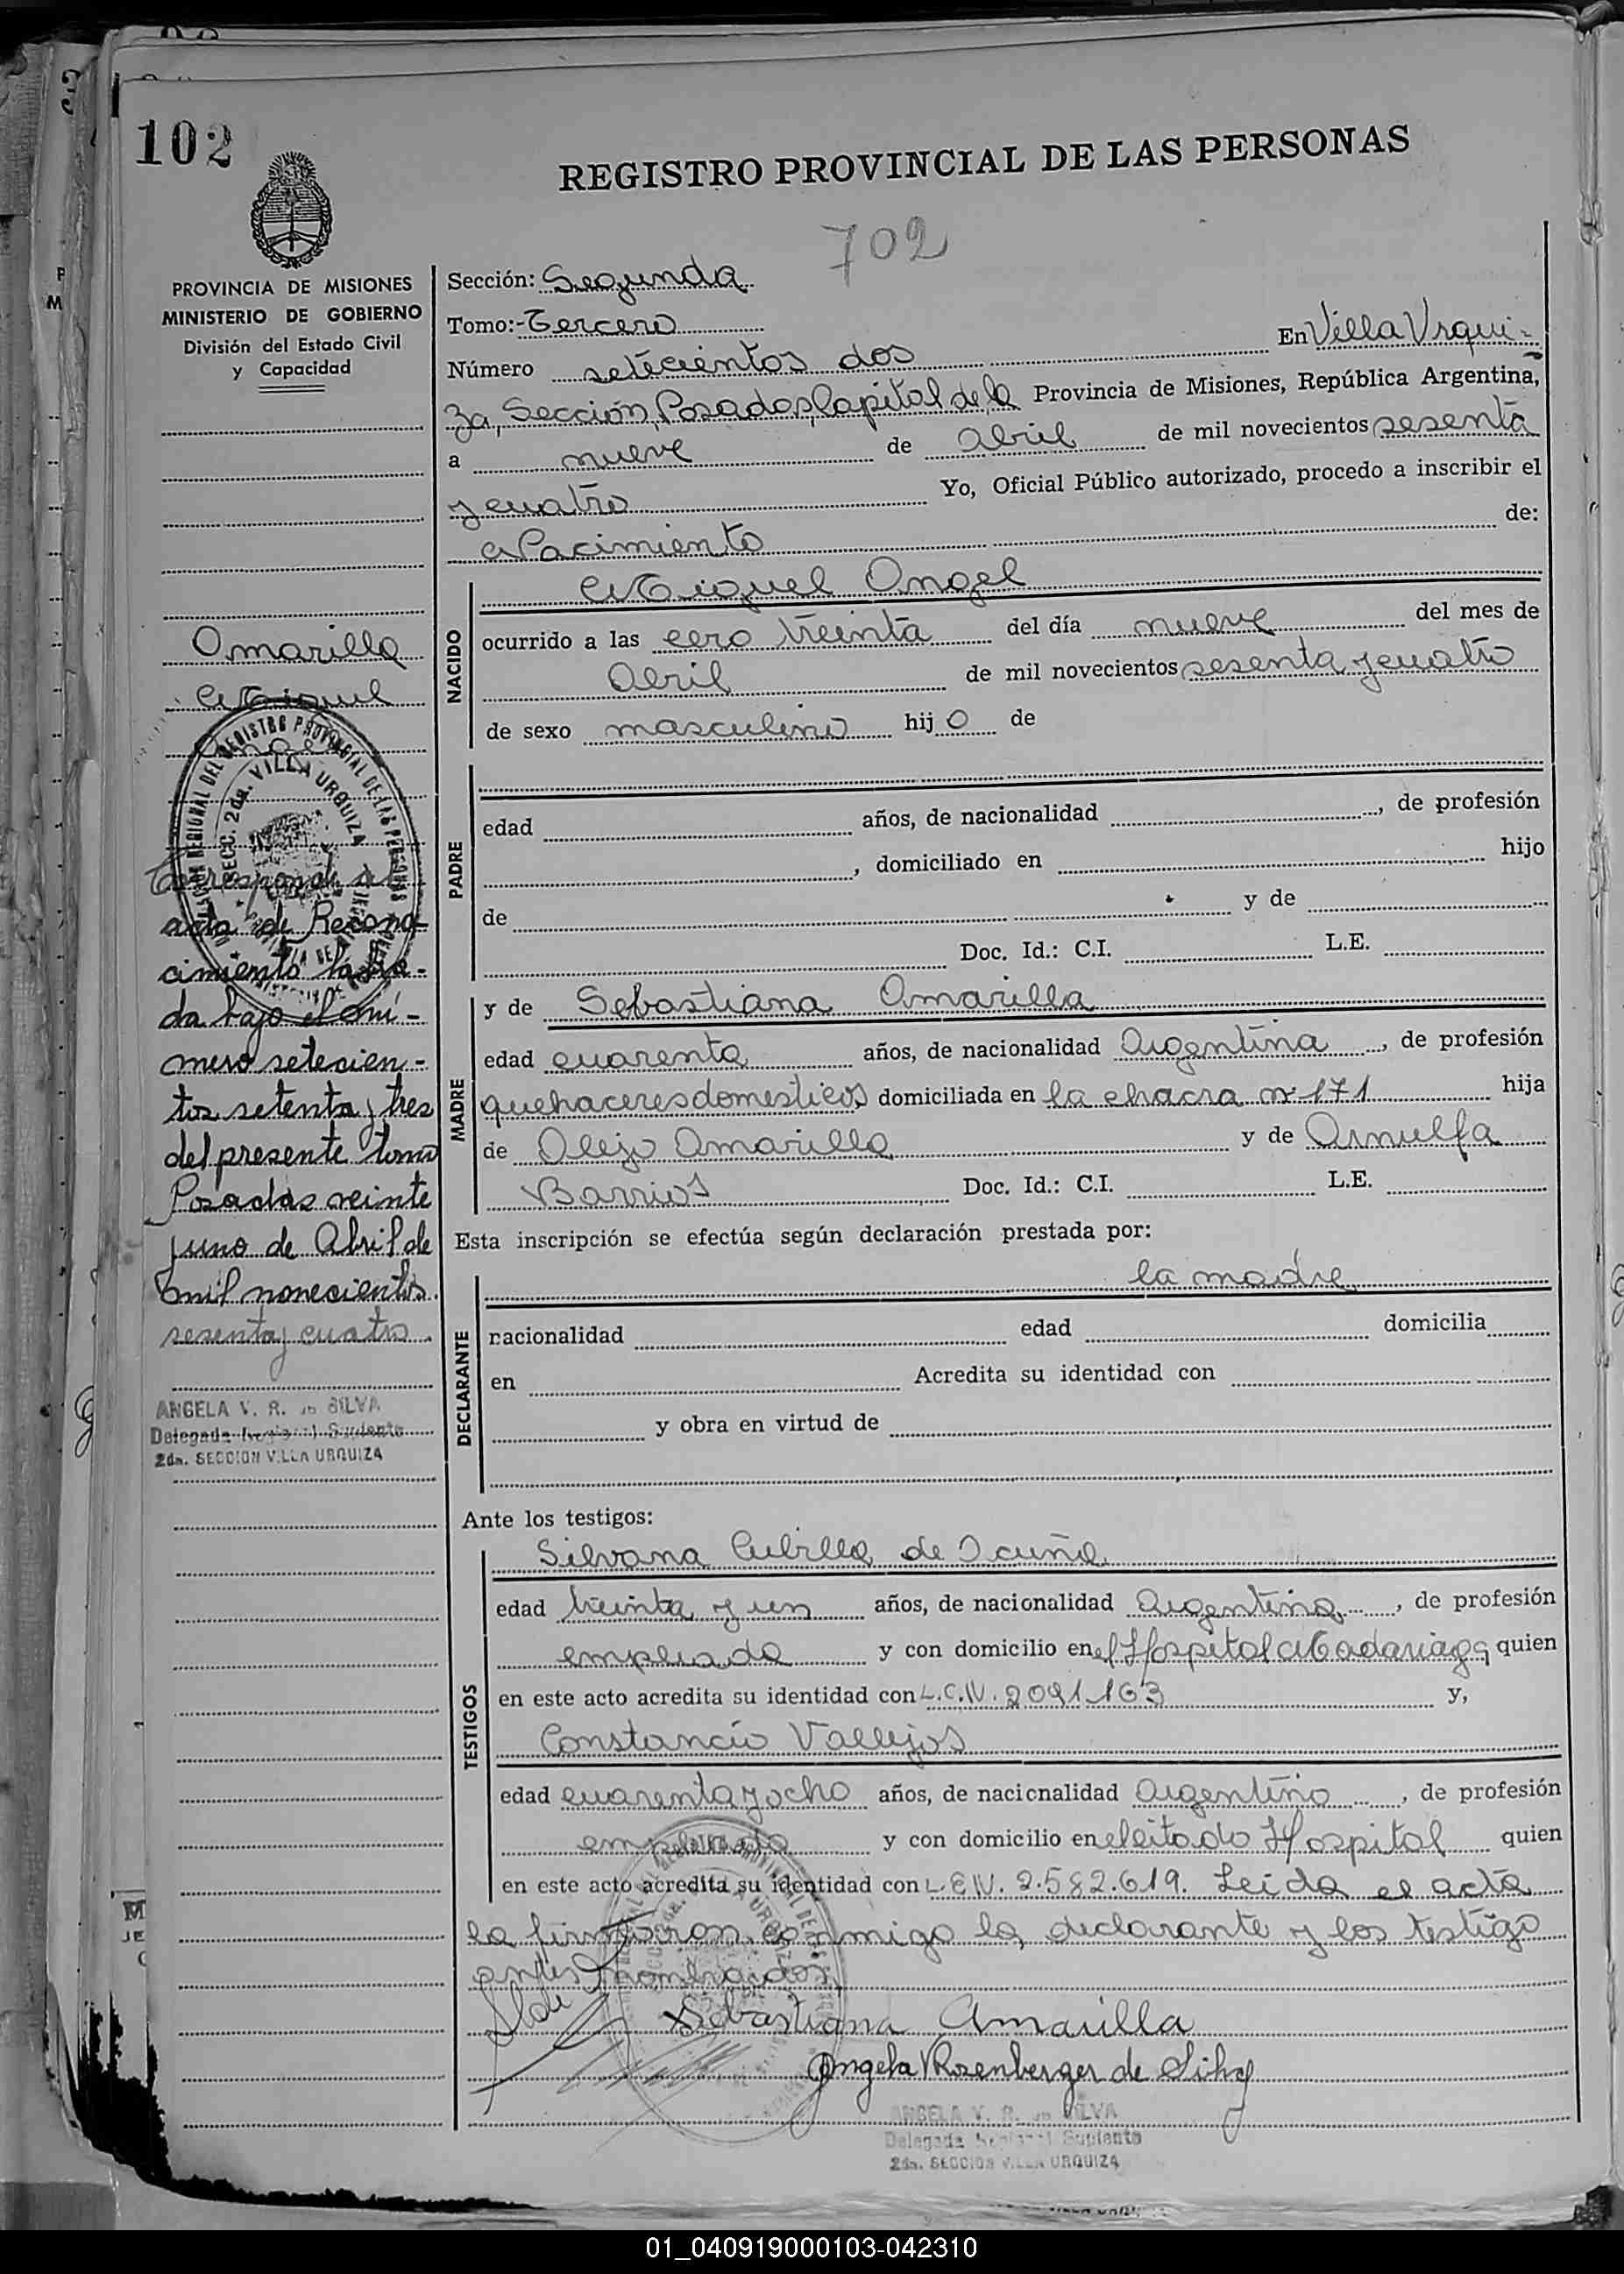 102
REGISTRO PROVINCIAL DE LAS PERSONAS
702
PROVINCIA DE MISIONES
MINISTERIO DE GOBIERNO
División del Estado Civil
y Capacidad
Sección: Segunda
Tomo:- Tercero
Número setecientos dos En Villa Urqui-
za, Sección, Posadas, Capital de la Provincia de Misiones, República Argentina,
a nueve de Abril de mil novecientos sesenta
y cuatro Yo, Oficial Público autorizado, procedo a inscribir el
Nacimiento de:
NACIDO
Miguel Angel
ocurrido a las cero treinta del día nueve del mes de
Abril de mil novecientos sesenta y cuatro
de sexo masculino hijo de
PADRE
edad años, de nacionalidad , de profesión
, domiciliado en hijo
de y de
Doc. Id.: C.I. L.E.
MADRE
y de Sebastiana Amarilla
edad cuarenta años, de nacionalidad Argentina , de profesión
quehaceres domesticos domiciliada en la chacra nº 171 hija
de Alejo Amarilla y de Arnulfa
Barrios Doc. Id.: C.I. L.E.
Esta inscripción se efectúa según declaración prestada por:
DECLARANTE
la madre
nacionalidad edad domicilia
en Acredita su identidad con
y obra en virtud de
Ante los testigos:
TESTIGOS
Silvana Cubilla de Acuña
edad treinta y un años, de nacionalidad Argentina , de profesión
empleada y con domicilio en el Hospital Madariaga quien
en este acto acredita su identidad con L.C.N. 2091.163 y,
Constancio Vallejos
edad cuarenta y ocho años, de nacionalidad Argentino , de profesión
empleado y con domicilio en el citado Hospital quien
en este acto acredita su identidad con L.E.N. 2.582.619. Leida el acta
la firmaron conmigo la declarante y los testigo
antes nombrados
Sebastiana Amarilla
Angela V Rosenberger de Silva
ANGELA V. R. de SILVA
Delegada Regional Suplente
2da. SECCION VILLA URQUIZA
Amarilla
Miguel
Angel
Corresponde al
acta de Recono-
cimiento labra-
da bajo el nú-
mero setecien-
tos setenta y tres
del presente tomo
Posadas veinte
y uno de Abril de
mil novecientos
sesenta y cuatro
ANGELA V. R. de SILVA
Delegada Regional Suplente
2da. SECCION VILLA URQUIZA
REGIONAL DEL REGISTRO PROVINCIAL DE LAS PERSONAS
SECC. 2da. VILLA URQUIZA
01_040919000103-042310